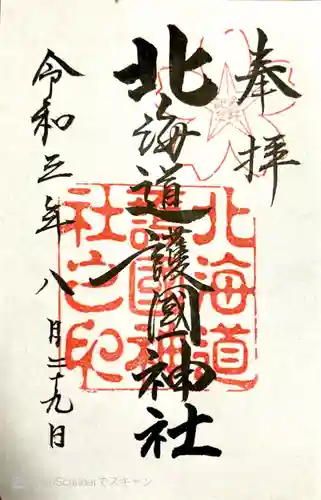 奉拝
北海道護國神社
令和三年八月二十九日
北海道
護国神
社之印
CamScannerでスキャン